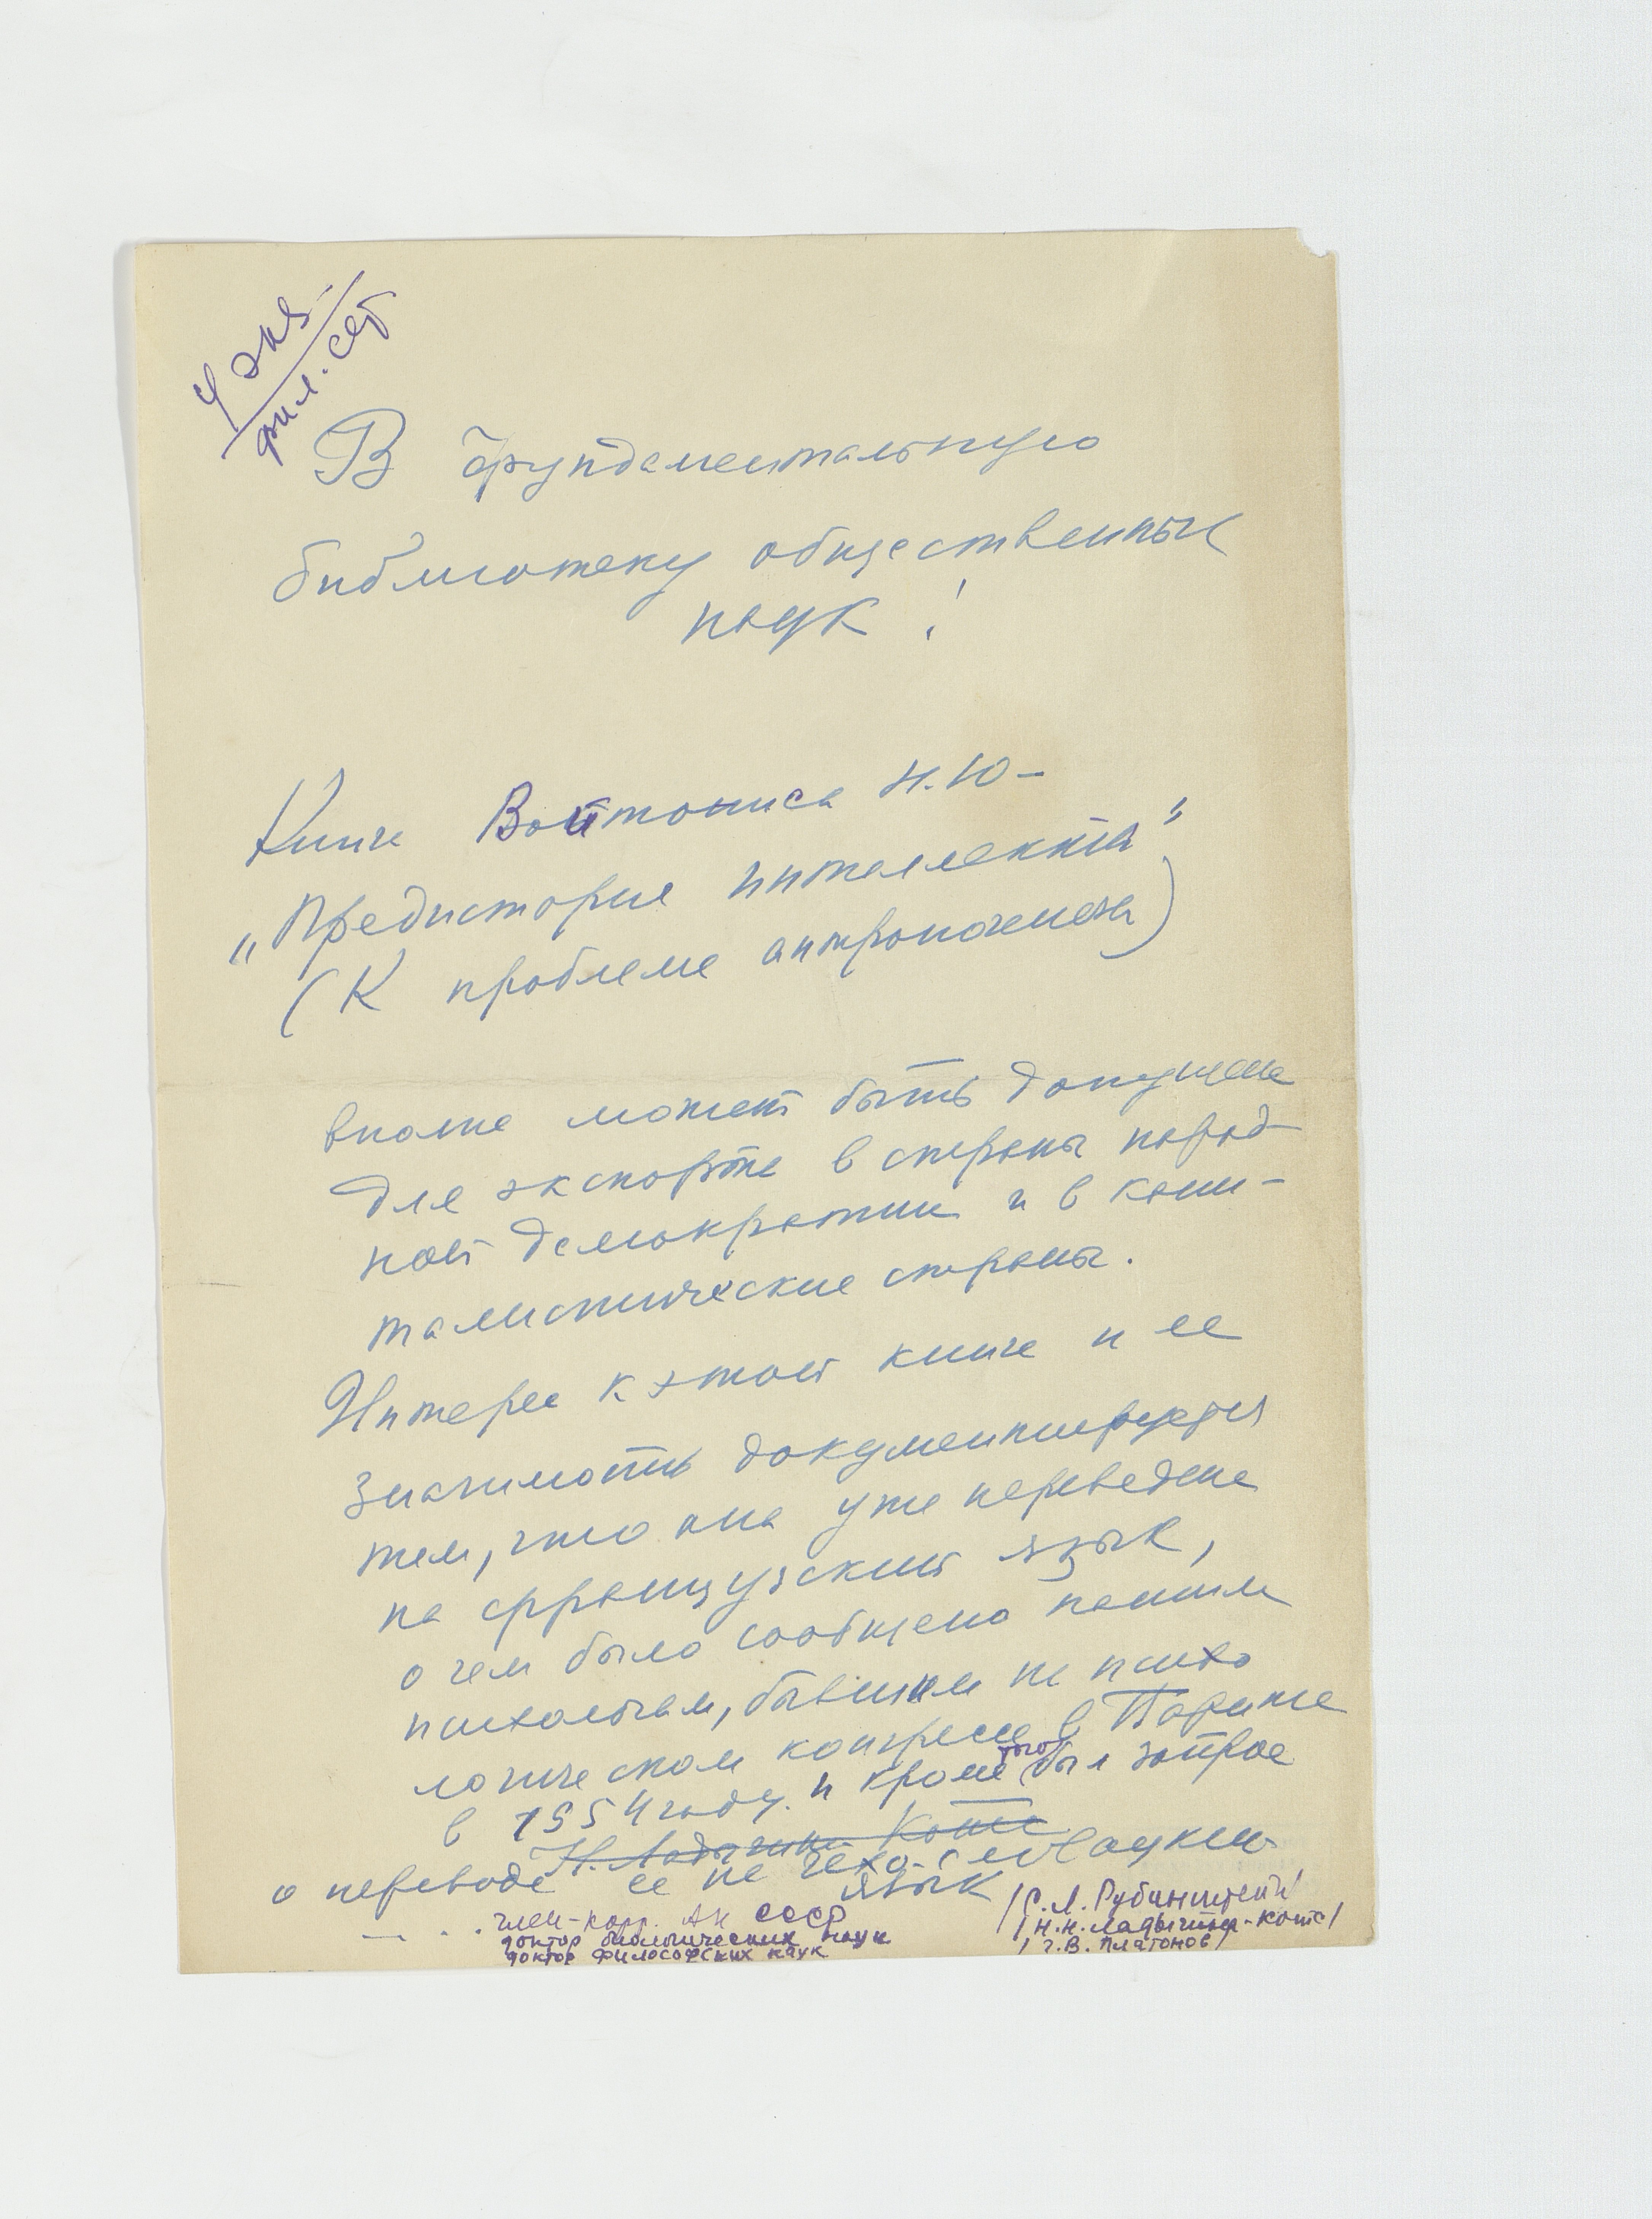 4 экз.
фил. сет
В фундаментальную
библиотеку общественных
наук!
Книга Войтониса Н.Ю-
„Предистория интеллекта"
(К проблеме антропогенеза)
вполне может быть допущена
для экспорта в страны народ-
ной демократии и в капи-
талистические страны.
Интерес к этой книге и ее
значимость документируется
тем, что она уже переведена
на французский язык,
о чем было сообщено нашим
психологам, бывшим на психо
логическом конгрессе в Париже
в 1954 году. и кроме того был запрос
Н. Ладыгина Котс
о переводе ее на чехо-словацкий
язык
член-корр. АН СССР /С.Л. Рубинштейн/
доктор биологических наук /Н.Н. Ладыгина-Котс/
доктор философских наук /Г.В. Платонов/